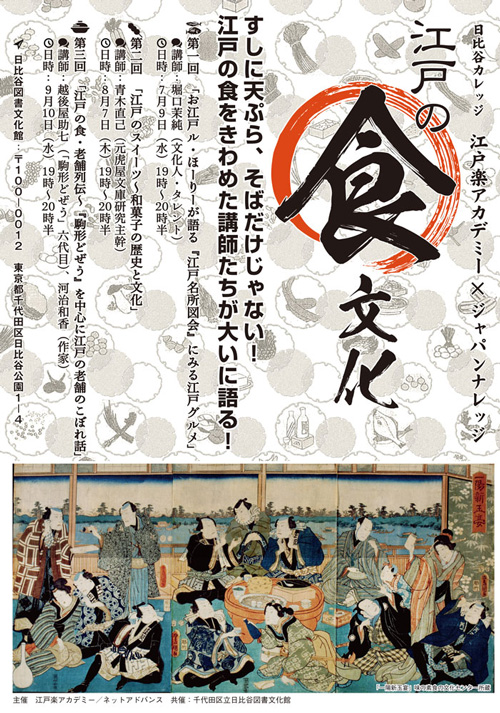 日比谷カレッジ
江戸楽アカデミー×ジャパンナレッジ
江戸の
食
文化
すしに天ぷら、そばだけじゃない！
江戸の食をきわめた講師たちが大いに語る！
第一回 「お江戸ル・ほーりーが語る『江戸名所図会』にみる江戸グルメ」
講師：堀口茉純（文化人・タレント）
日時：7月9日（水）19時〜20時半
第二回 「江戸のスイーツ〜和菓子の歴史と文化」
講師：青木直己（元虎屋文庫研究主幹）
日時：8月7日（木）19時〜20時半
第三回 「江戸の食・老舗列伝〜『駒形どぜう』を中心に江戸の老舗のこぼれ話」
講師：越後屋助七（「駒形どぜう」六代目）、河治和香（作家）
日時：9月10日（水）19時〜20時半
日比谷図書文化館：〒100-0012 東京都千代田区日比谷公園1-4
「一陽新玉宴」味の素食の文化センター所蔵
主催 江戸楽アカデミー／ネットアドバンス 共催：千代田区立日比谷図書文化館